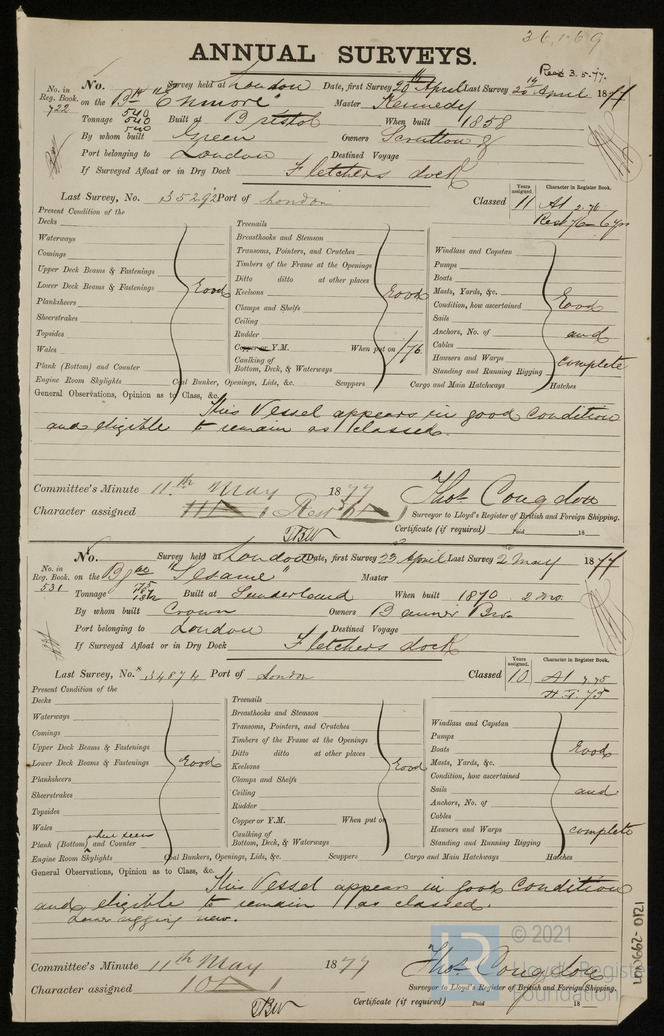 36,1,69
ANNUAL SURVEYS.
Recd 3.5.77.
No. in Reg. Book. 722
No. Survey held at London Date, first Survey 20th April Last Survey 20th April 1877
on the Bk "Enmore" Master Kennedy
Tonnage 540 540 540 Built at Bristol When built 1858
By whom built Green Owners Scrutton &
Port belonging to London Destined Voyage
If Surveyed Afloat or in Dry Dock Fletchers dock
Last Survey, No. 35292 Port of London Classed Years assigned. 11 Character in Register Book. A1 2.76
Rest 76 6 yrs
Present Condition of the
Decks
Waterways
Comings
Upper Deck Beams & Fastenings
Lower Deck Beams & Fastenings Good
Planksheers
Sheerstrakes
Topsides
Wales
Plank (Bottom) and Counter
Treenails
Breasthooks and Stemson
Transoms, Pointers, and Crutches
Timbers of the Frame at the Openings
Ditto ditto at other places
Keelsons Good
Clamps and Shelfs
Ceiling
Rudder
Copper or Y.M. When put on 1/76
Caulking of Bottom, Deck, & Waterways
Windlass and Capstan
Pumps
Boats
Masts, Yards, &c.
Condition, how ascertained Good
Sails
Anchors, No. of and
Cables
Hawsers and Warps complete
Standing and Running Rigging
Engine Room Skylights Coal Bunker, Openings, Lids, &c. Scuppers Cargo and Main Hatchways Hatches
General Observations, Opinion as to Class, &c.
This Vessel appears in good Condition
and eligible to remain as classed.
Committee's Minute 11th May 1877 Thos. Congdon
Character assigned Surveyor to Lloyd's Register of British and Foreign Shipping.
Certificate (if required) 18
No. in Reg. Book. 531
No. Survey held at London Date, first Survey 23 April Last Survey 2 May 1877
on the "Sesame" Master
Tonnage Built at Sunderland When built 1870 2 mo.
By whom built Crown Owners Banner Bro.
Port belonging to London Destined Voyage
If Surveyed Afloat or in Dry Dock Fletchers dock
Last Survey, No. 34874 Port of London Classed Years assigned. 10 Character in Register Book. A1 4.75
Present Condition of the
Decks
Waterways
Comings
Upper Deck Beams & Fastenings
Lower Deck Beams & Fastenings Good
Planksheers
Sheerstrakes
Topsides
Wales
where seen
Plank (Bottom) and Counter
Treenails
Breasthooks and Stemson
Transoms, Pointers, and Crutches
Timbers of the Frame at the Openings
Ditto ditto at other places
Keelsons Good
Clamps and Shelfs
Ceiling
Rudder
Copper or Y.M. When put on
Caulking of Bottom, Deck, & Waterways
Windlass and Capstan
Pumps
Boats Good
Masts, Yards, &c.
Condition, how ascertained
Sails and
Anchors, No. of
Cables
Hawsers and Warps complete
Standing and Running Rigging
Engine Room Skylights Coal Bunkers, Openings, Lids, &c. Scuppers Cargo and Main Hatchways Hatches
General Observations, Opinion as to Class, &c.
This Vessel appears in good Condition
and eligible to remain as classed.
Lower rigging new.
Committee's Minute 11th May 1877 Thos. Congdon
Character assigned 10A1 Surveyor to Lloyd's Register of British and Foreign Shipping.
Certificate (if required) Paid 18
LON662-0121
LR © 2021
Lloyd's Register
Foundation